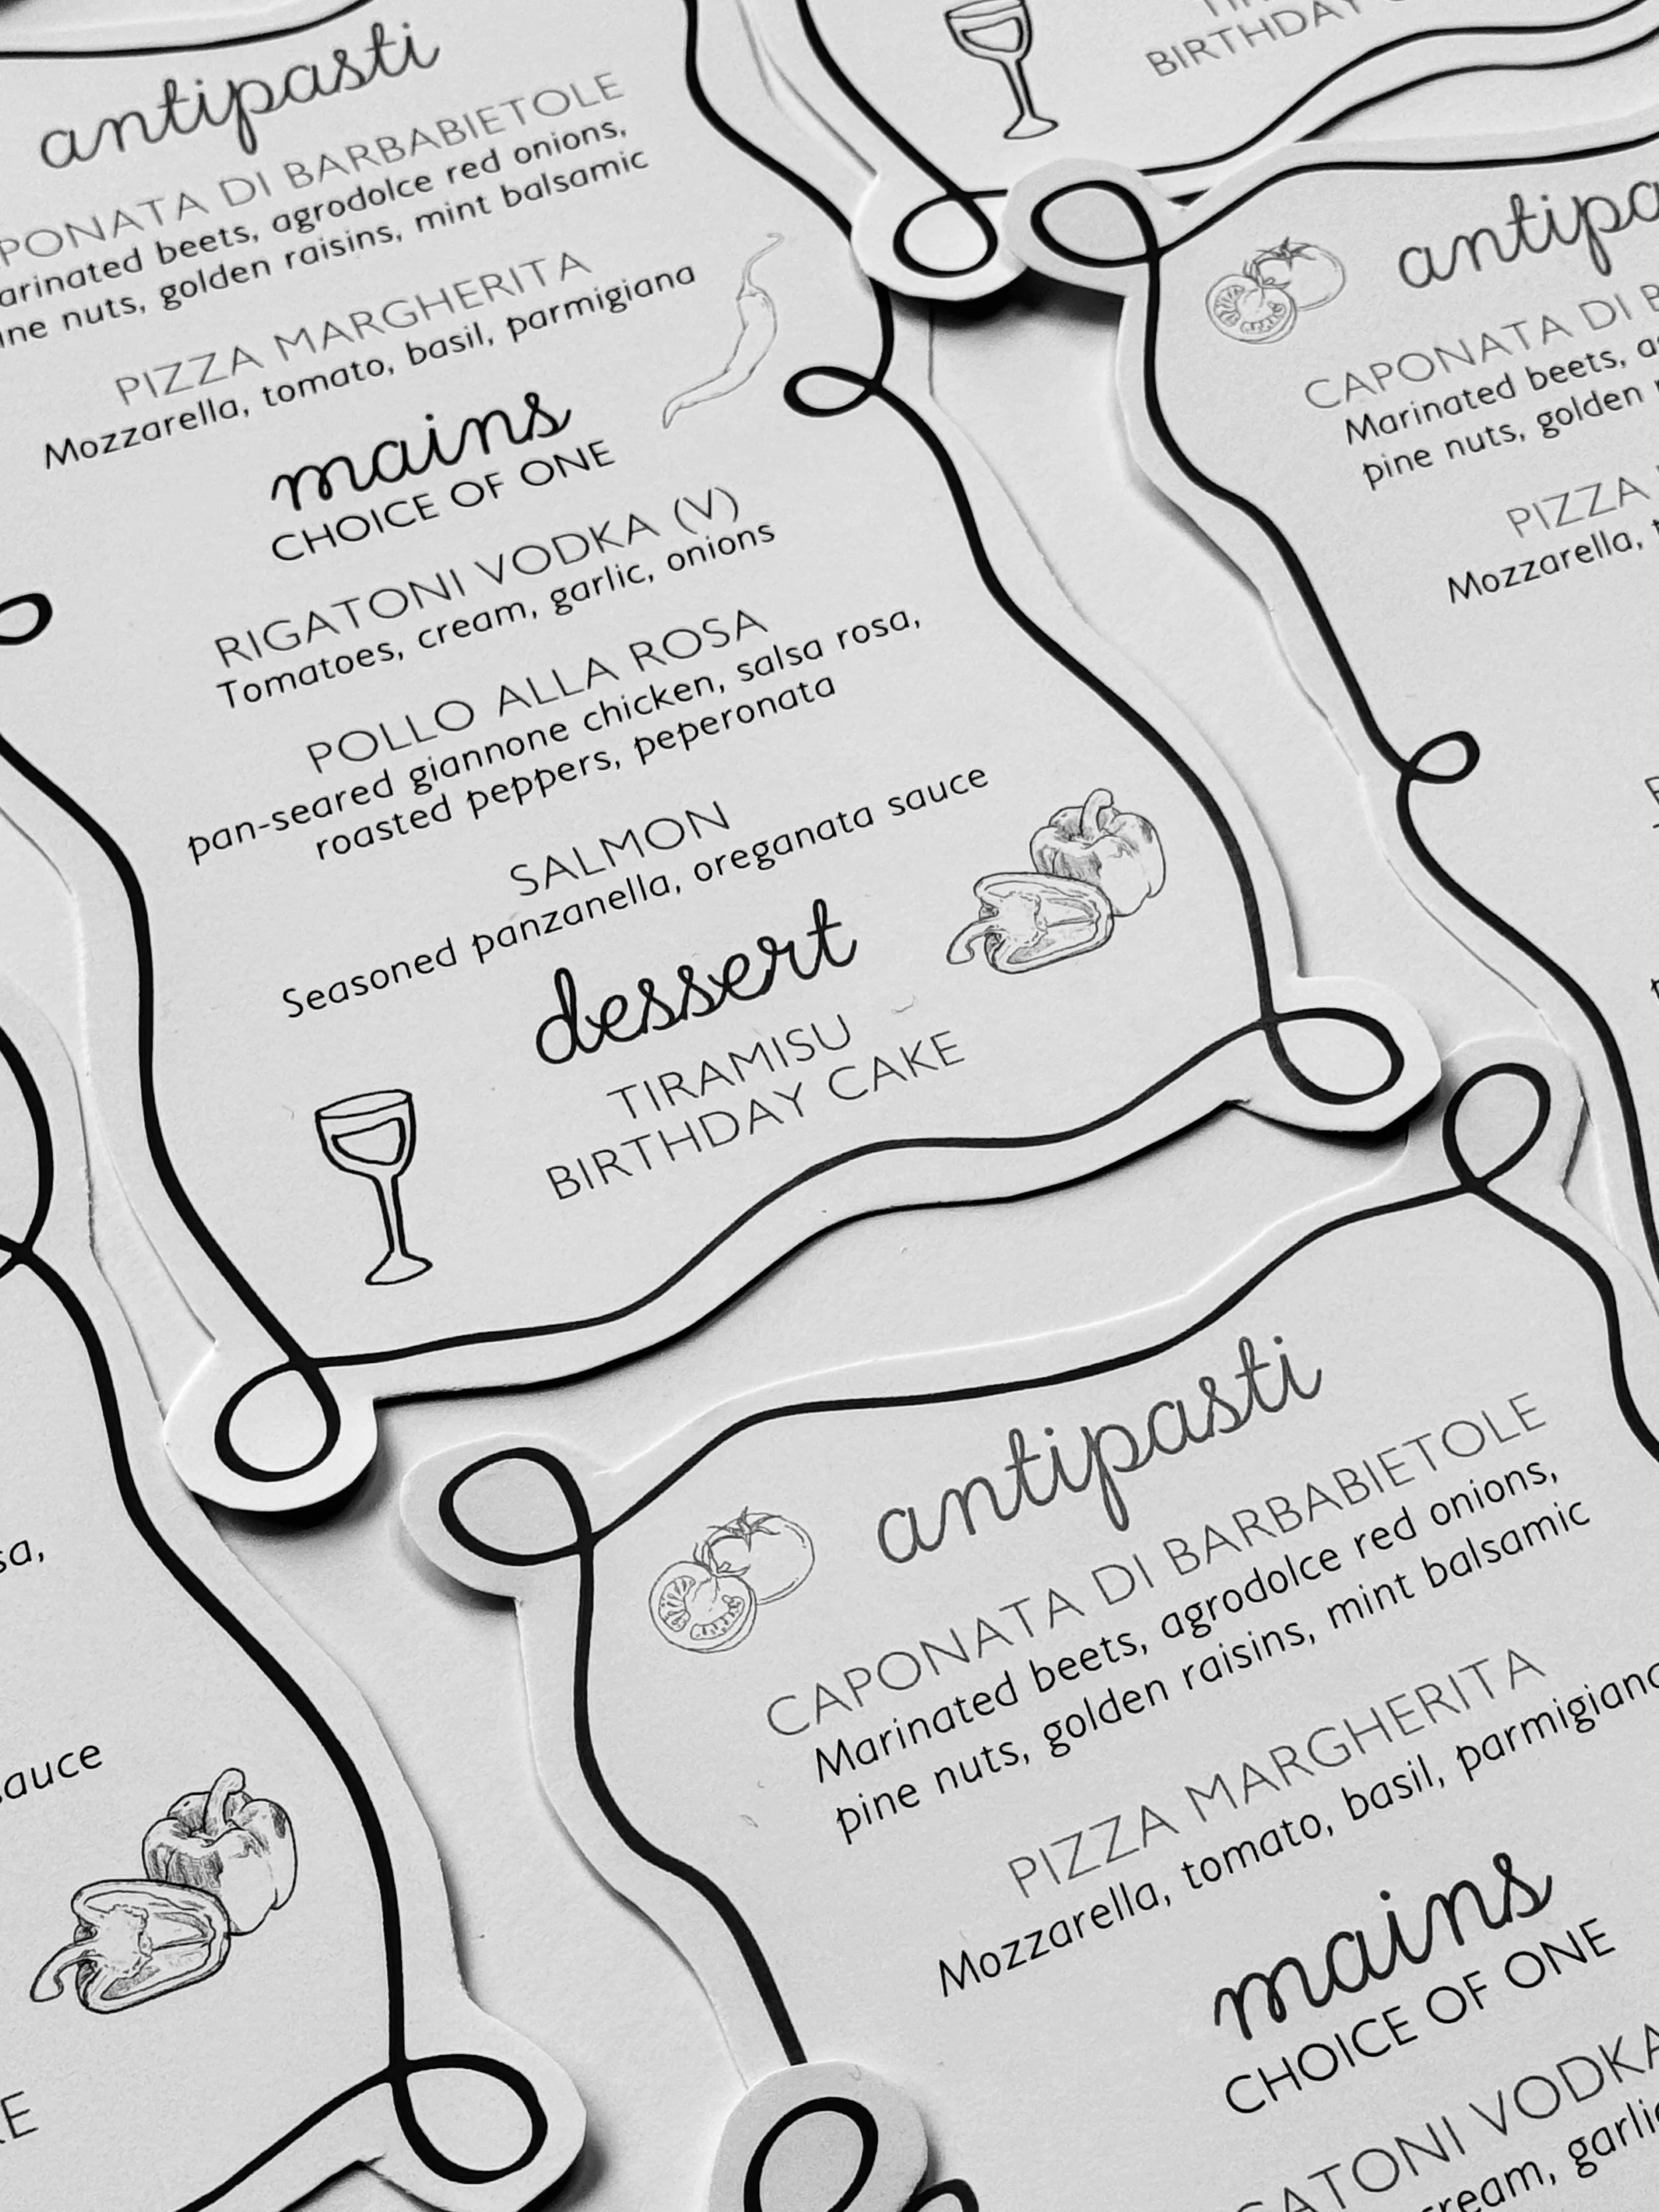 antipasti
PONATA DI BARBABIETOLE
arinated beets, agrodolce red onions,
ine nuts, golden raisins, mint balsamic
PIZZA MARGHERITA
Mozzarella, tomato, basil, parmigiana
mains
CHOICE OF ONE
RIGATONI VODKA (V)
Tomatoes, cream, garlic, onions
POLLO ALLA ROSA
pan-seared giannone chicken, salsa rosa,
roasted peppers, peperonata
SALMON
Seasoned panzanella, oreganata sauce
dessert
TIRAMISU
BIRTHDAY CAKE
BIRTHDAY
antipa
CAPONATA DI B
Marinated beets, a
pine nuts, golden
PIZZA
Mozzarella,
sa,
sauce
E
antipasti
CAPONATA DI BARBABIETOLE
Marinated beets, agrodolce red onions,
pine nuts, golden raisins, mint balsamic
PIZZA MARGHERITA
Mozzarella, tomato, basil, parmigiana
mains
CHOICE OF ONE
GATONI VODKA
ream, garlic